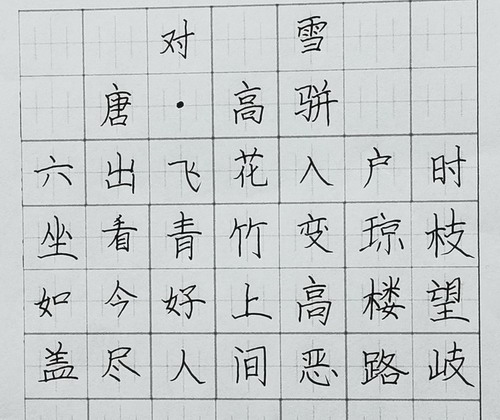 对雪
唐·高骈
六出飞花入户时
坐看青竹变琼枝
如今好上高楼望
盖尽人间恶路岐